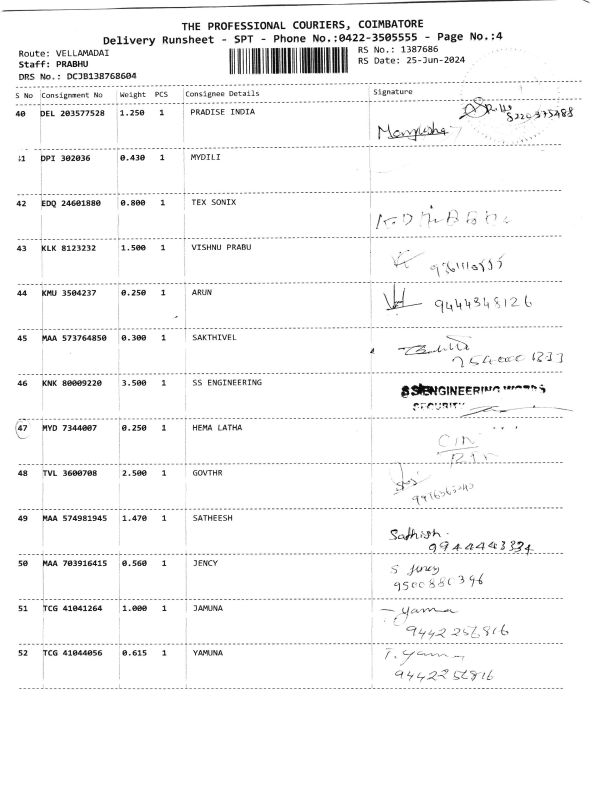 THE PROFESSIONAL COURIERS, COIMBATORE
Delivery Runsheet - SPT - Phone No.:0422-3505555 - Page No.:4
Route: VELLAMADAI
RS No.: 1387686
Staff: PRABHU
RS Date: 25-Jun-2024
DRS No.: DCJB138768604
S No Consignment No Weight PCS Consignee Details Signature
40 DEL 203577528 1.250 1 PRADISE INDIA
41 DPI 302036 0.430 1 MYDILI
42 EDQ 24601880 0.800 1 TEX SONIX
43 KLK 8123232 1.500 1 VISHNU PRABU
44 KMU 3504237 0.250 1 ARUN
9444348126
45 MAA 573764850 0.300 1 SAKTHIVEL
46 KNK 80009220 3.500 1 SS ENGINEERING
SS ENGINEERING WORKS
SECURITY
47 MYD 7344007 0.250 1 HEMA LATHA
48 TVL 3600708 2.500 1 GOVTHR
49 MAA 574981945 1.470 1 SATHEESH
Sathish.
9944443334
50 MAA 703916415 0.560 1 JENCY
S Jency
9500880396
51 TCG 41041264 1.000 1 JAMUNA
Yamuna
9442256816
52 TCG 41044056 0.615 1 YAMUNA
T. Yamuna
9442256816